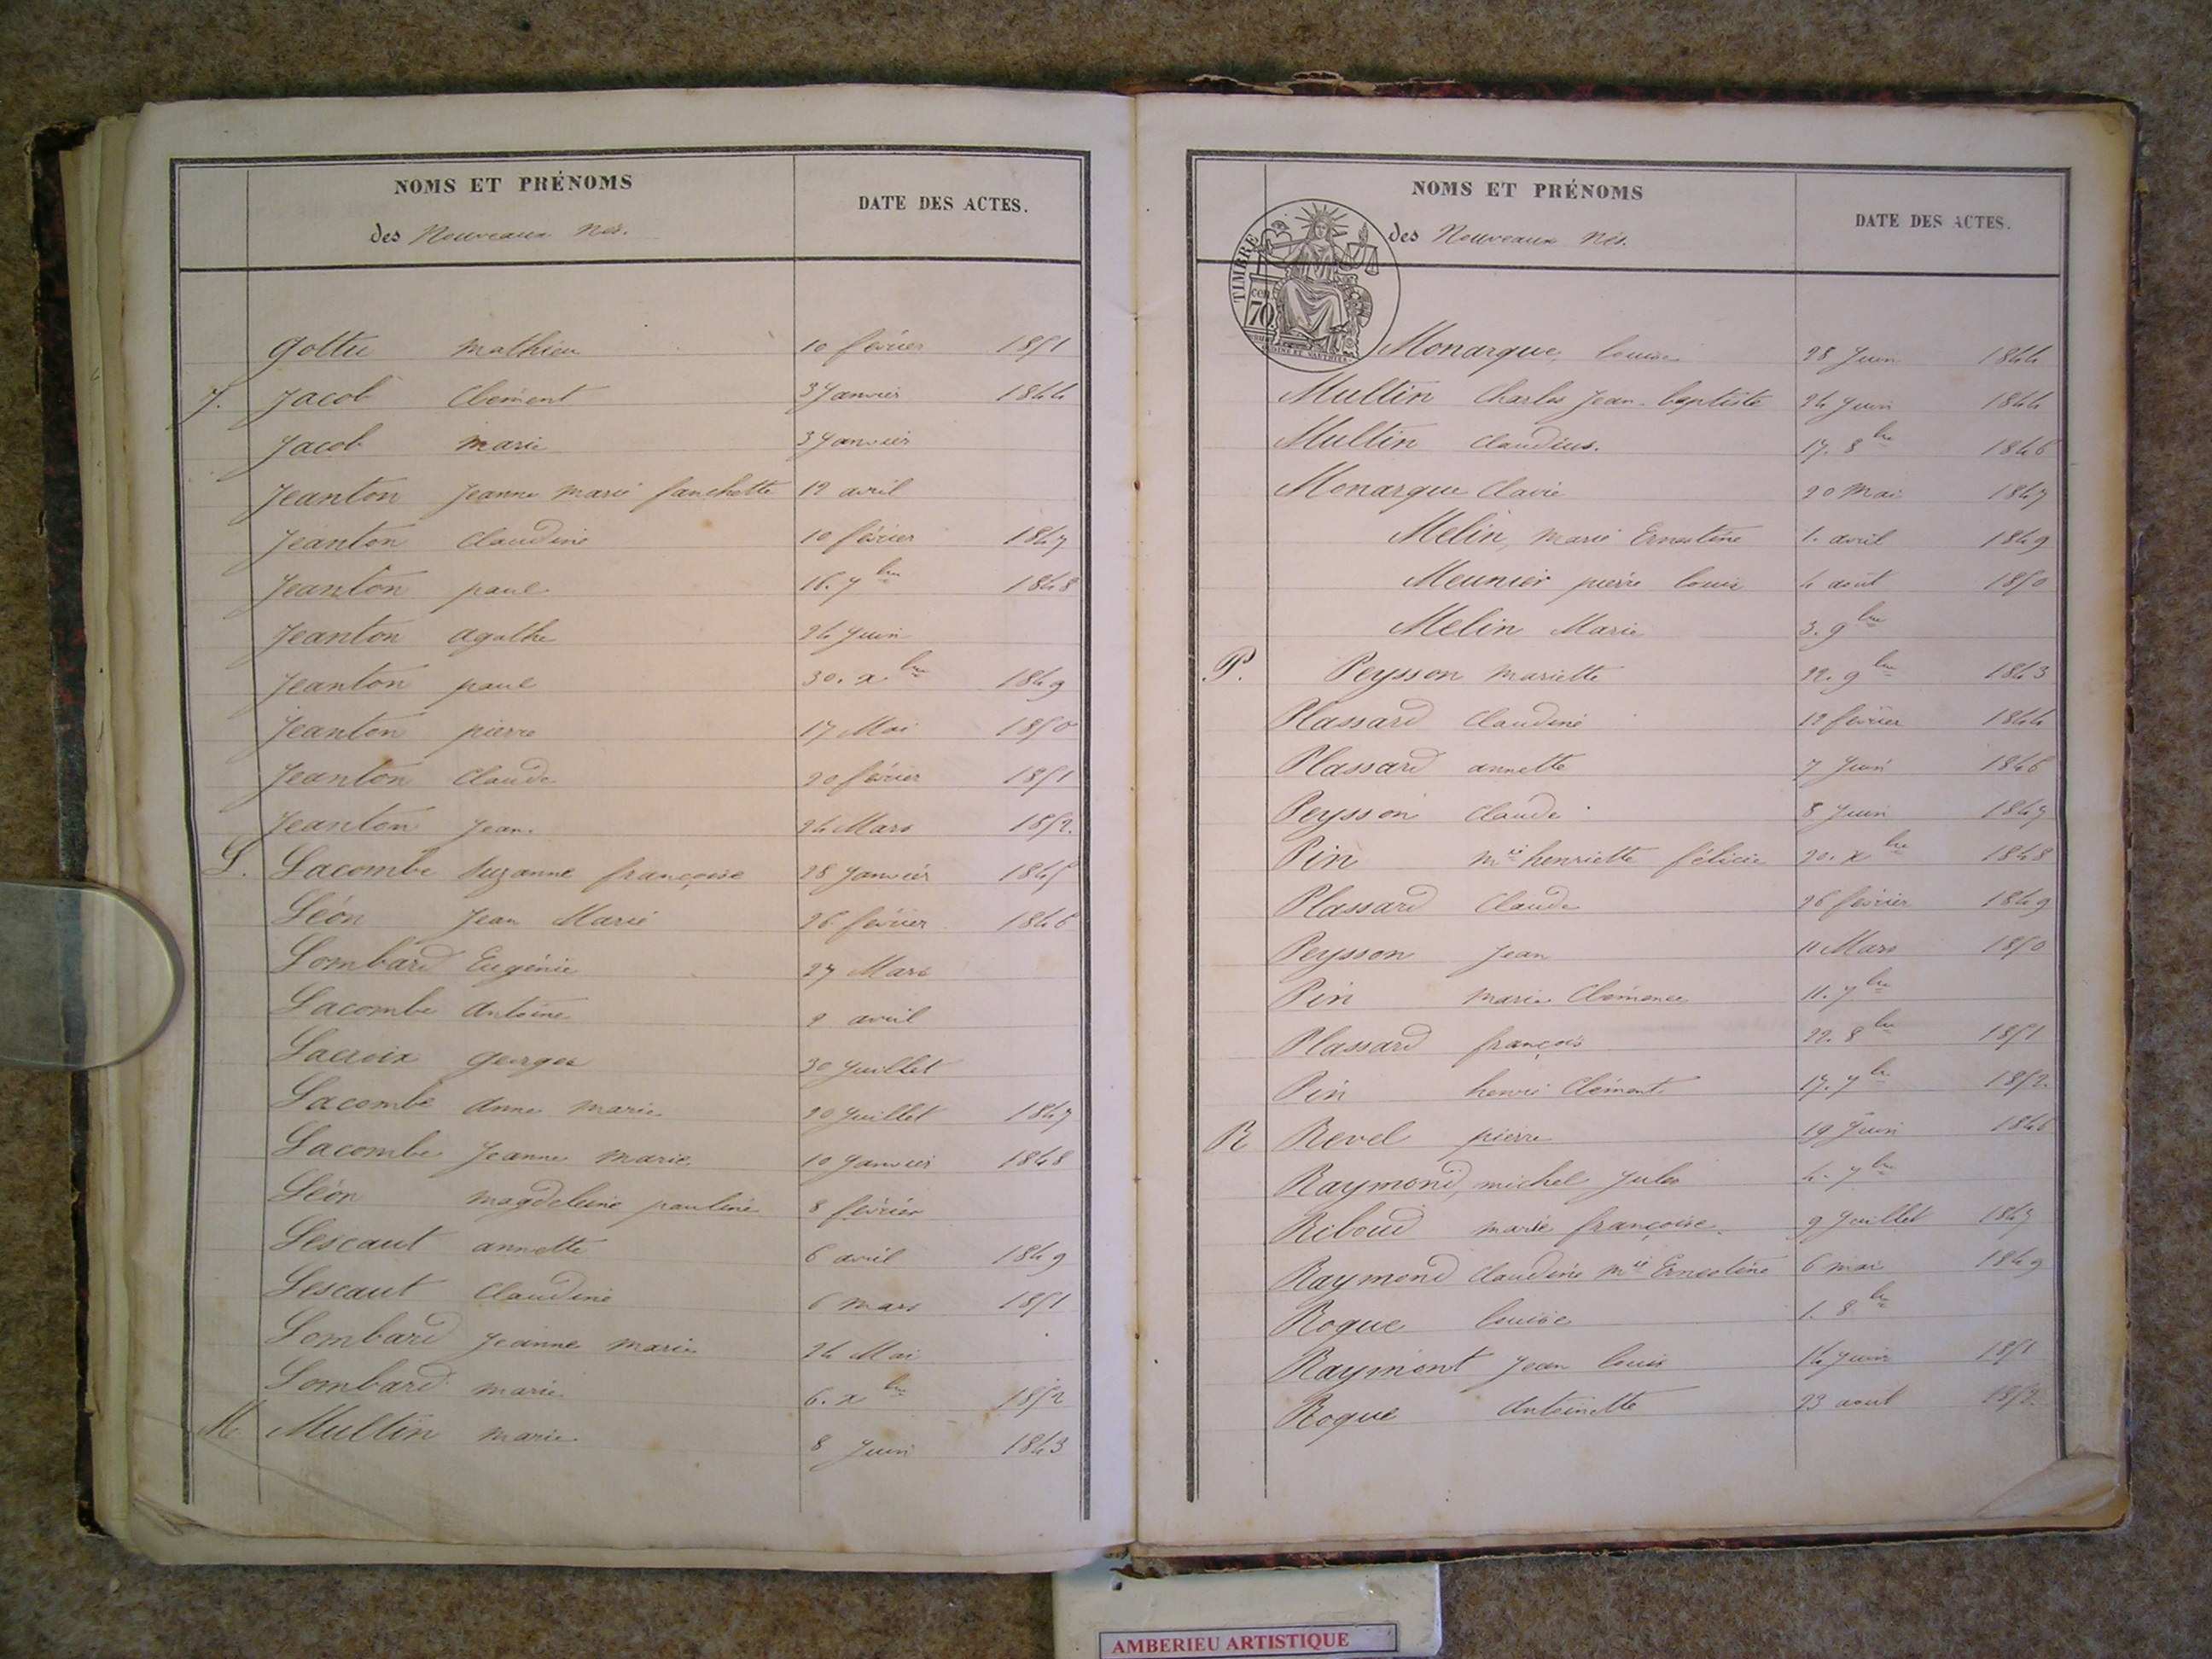 NOMS ET PRÉNOMS
des Nouveaux Nés.
DATE DES ACTES.
Gottu Mathieu 10 février 1851
J. Jacob Clément 3 Janvier 1844
Jacob Marie 3 Janvier
Jeanton Jeanne Marie fanchette 12 avril
Jeanton Claudine 10 février 1847
Jeanton paul 16. 7bre 1848
Jeanton agathe 24 Juin
Jeanton paul 30. xbre 1849
Jeanton pierre 17 Mai 1850
Jeanton Claude 20 février 1851
Jeanton Jean. 24 Mars 1852.
L. Lacombe Suzanne françoise 28 Janvier 1845
Léon Jean Marie 26 février 1846
Lombard Eugénie 27 Mars
Lacombe Antoine 2 avril
Lacroix Georges 30 Juillet
Lacombe Anne Marie 20 Juillet 1847
Lacombe Jeanne Marie 10 Janvier 1848
Léon Magdeleine pauline 8 février
Lescaut annette 6 avril 1849
Lescaut Claudine 6 mars 1851
Lombard Jeanne Marie 24 Mai
Lombard Marie 6. xbre 1852
M. Multin Marie 8 Juin 1843
NOMS ET PRÉNOMS
des Nouveaux Nés.
DATE DES ACTES.
TIMBRE
70
Monarque, louise 28 Juin 1844
Multin Charles Jean-baptiste 24 Juin 1844
Multin Claudius. 17. 8bre 1846
Monarque Clavie 20 Mai 1847
Melin, Marie Ernestine 1. avril 1849
Meunier pierre louis 4 août 1850
Melin Marie 3. 9bre
P. Peysson Mariette 22. 9bre 1843
Plassard Claudine 12 février 1844
Plassard annette 7 Juin 1846
Peysson Claude 8 Juin 1847
Pin Mie henriette félicie 20. xbre 1848
Plassard Claude 26 février 1849
Peysson Jean 11 Mars 1850
Pin Marie Clémence 11. 7bre
Plassard françois 22. 8bre 1851
Pin henri Clément 17. 7bre 1852
R Revel pierre 19 Juin 1846
Raymond, michel Jules 4. 7bre
Riboud marie françoise. 9 Juillet 1847
Raymond Claudine Mie Ernestine 6 mai 1849
Roque louise 1. 8bre
Raymont Jean louis 14 Juin 1851
Roque Antoinette 23 aout 1852
AMBERIEU ARTISTIQUE